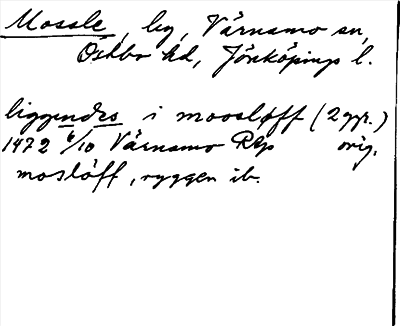 Mossle, by, Värnamo sn,
Östbo hd, Jönköpings l.
liggendes i moosløff (2 ggr.)
1472 6/10 Värnamo RAp orig.
mosløff, ryggen ib.